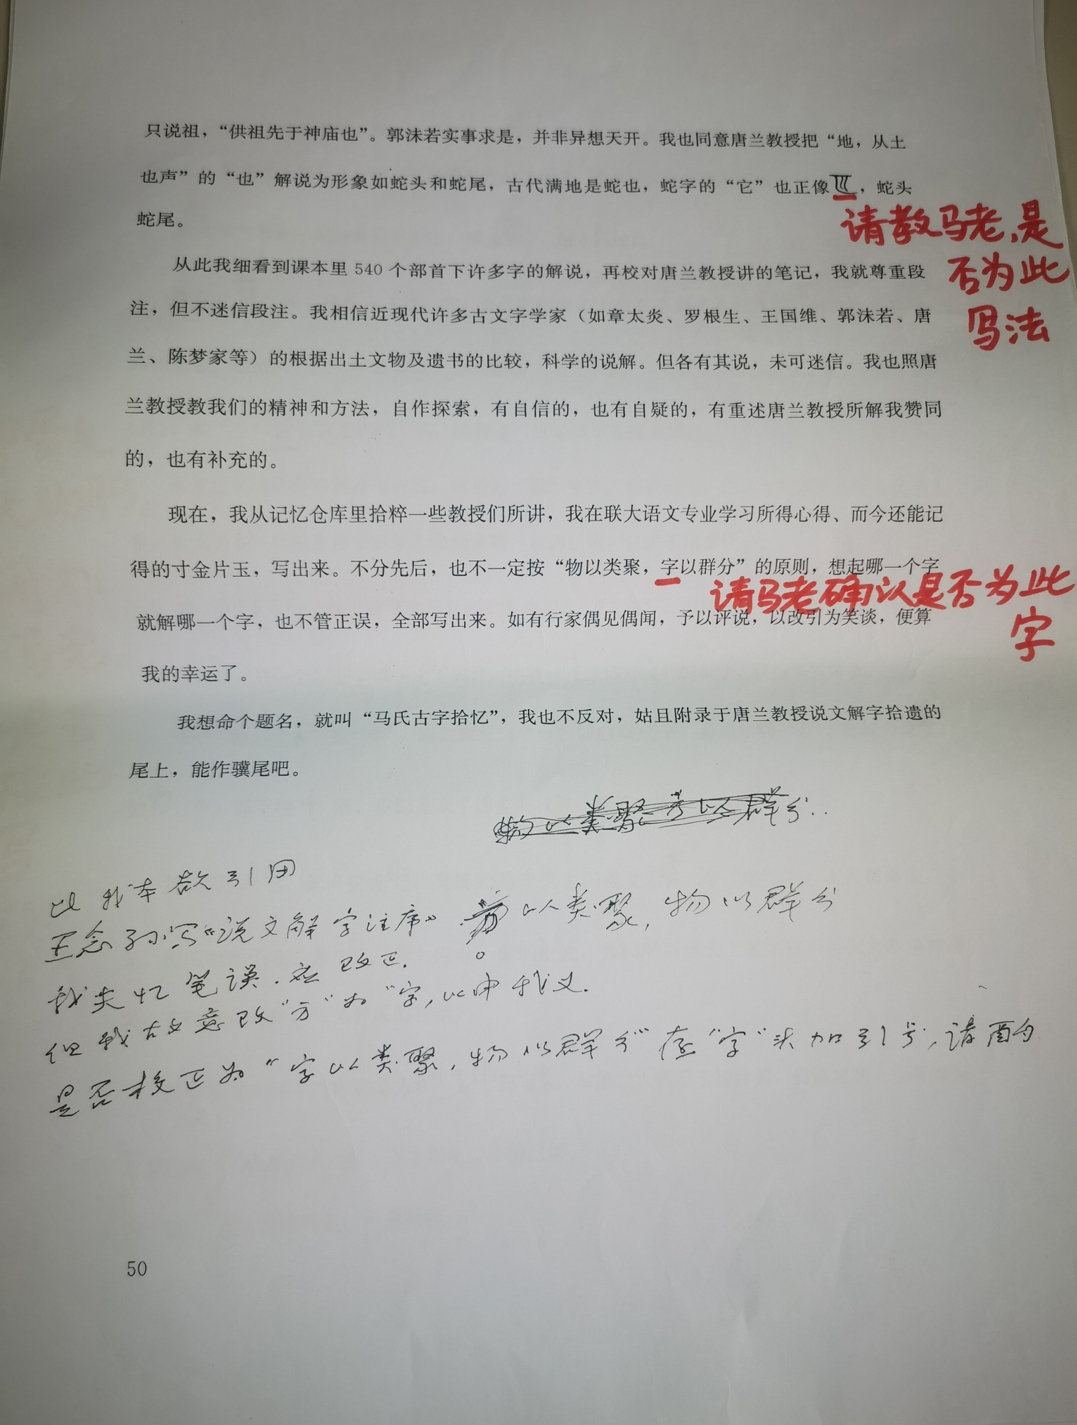 只说祖，“供祖先于神庙也”。郭沫若实事求是，并非异想天开。我也同意唐兰教授把“地，从土
也声”的“也”解说为形象如蛇头和蛇尾，古代满地是蛇也，蛇字的“它”也正像，蛇头
蛇尾。
请教马老，是
否为此
写法
从此我细看到课本里 540 个部首下许多字的解说，再校对唐兰教授讲的笔记，我就尊重段
注，但不迷信段注。我相信近现代许多古文字学家（如章太炎、罗根生、王国维、郭沫若、唐
兰、陈梦家等）的根据出土文物及遗书的比较，科学的说解。但各有其说，未可迷信。我也照唐
兰教授教我们的精神和方法，自作探索，有自信的，也有自疑的，有重述唐兰教授所解我赞同
的，也有补充的。
现在，我从记忆仓库里拾粹一些教授们所讲，我在联大语文专业学习所得心得、而今还能记
得的寸金片玉，写出来。不分先后，也不一定按“物以类聚，字以群分”的原则，想起哪一个字
请马老确认是否为此
字
就解哪一个字，也不管正误，全部写出来。如有行家偶见偶闻，予以评说，以改引为笑谈，便算
我的幸运了。
我想命个题名，就叫“马氏古字拾忆”，我也不反对，姑且附录于唐兰教授说文解字拾遗的
尾上，能作骥尾吧。
物以类聚 方以群分..
此我本欲引用
王念孙写《说文解字注序》方以类聚，物以群分
我失忆笔误.应改正.
但我故意改“方”为“字，以申我义.
是否校正为“字以类聚，物以群分”在“字”头加引号，请酌
50